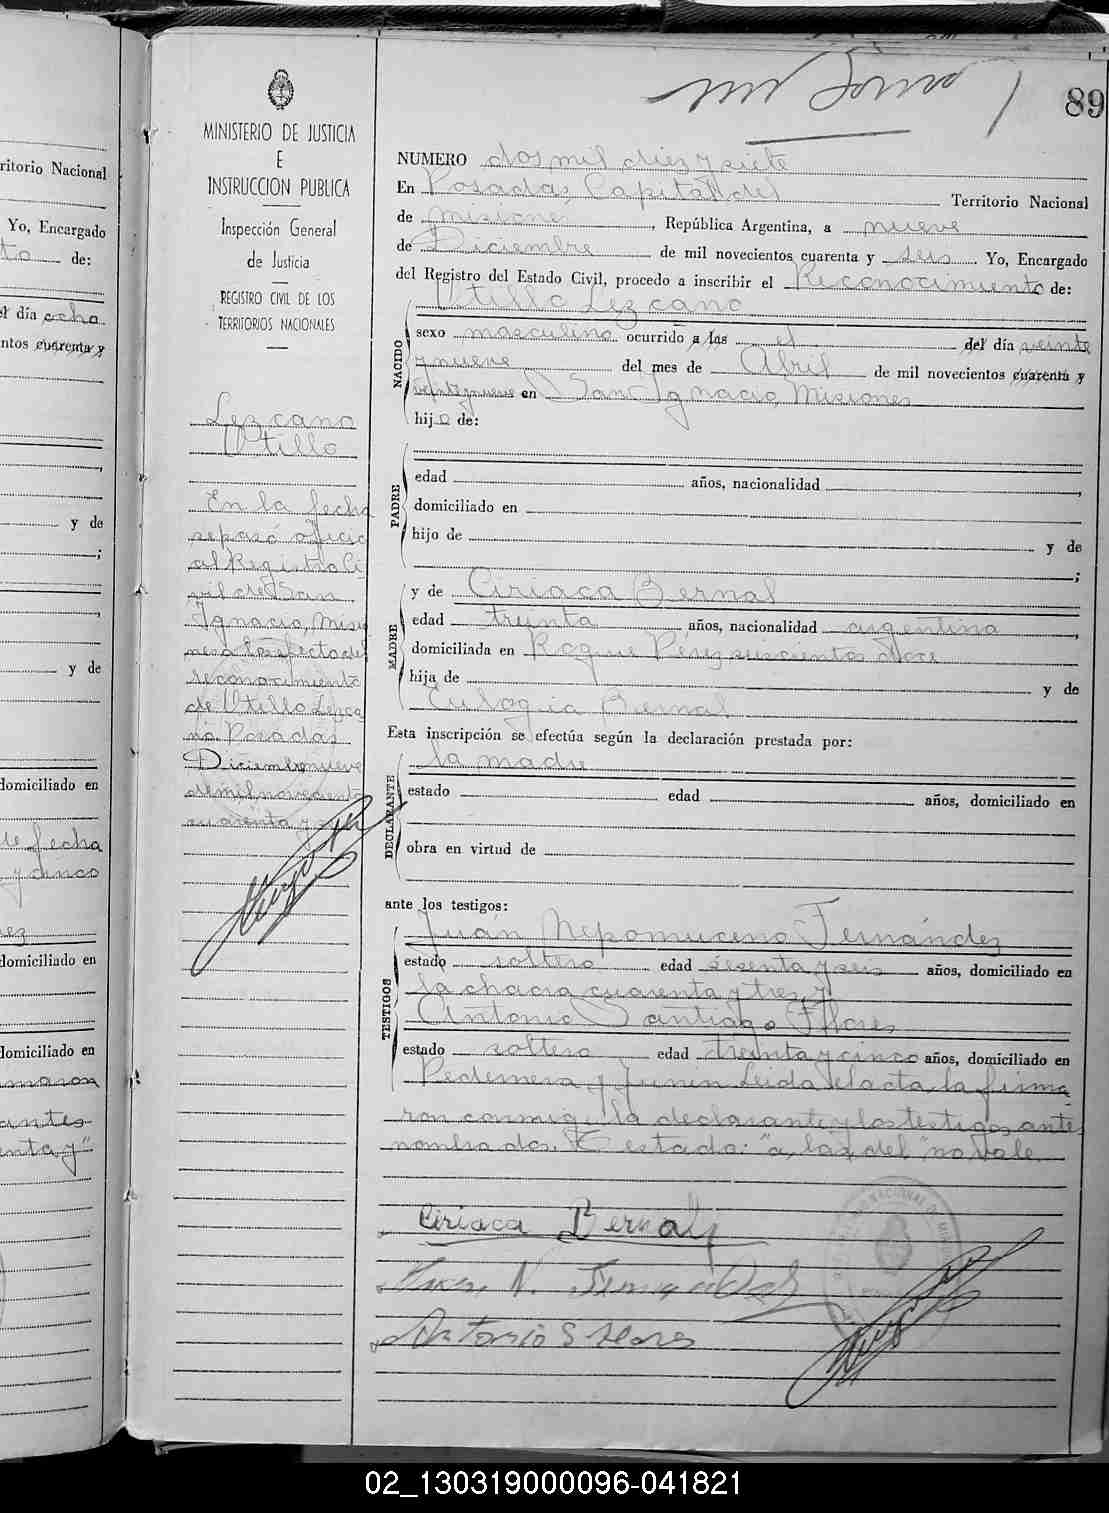 89
MINISTERIO DE JUSTICIA
E
INSTRUCCION PUBLICA
Inspección General
de Justicia
REGISTRO CIVIL DE LOS
TERRITORIOS NACIONALES
Lezcano
Otillo
En la fecha
se pasó oficio
al Registro Ci
vil de San
Ignacio, Misio
nes a los efectos del
reconocimiento
de Otillo Lezca
no. Posadas
Diciembre nueve
de mil novecientos
cuarenta y seis
NUMERO dos mil diez y siete
En Posadas, Capital del Territorio Nacional
de Misiones, República Argentina, a nueve
de Diciembre de mil novecientos cuarenta y seis. Yo, Encargado
del Registro del Estado Civil, procedo a inscribir el Reconocimiento de:
Otillo Lezcano
NACIDO
sexo masculino ocurrido a las el del día veinte
y nueve del mes de Abril de mil novecientos cuarenta y
veintinueve en San Ignacio, Misiones
hijo de:
PADRE
edad años, nacionalidad,
domiciliado en
hijo de y de
;
MADRE
y de Ciriaca Bernal
edad treinta años, nacionalidad argentina,
domiciliada en Roque Pérez seiscientos once
hija de y de
Eulogia Bernal
Esta inscripción se efectúa según la declaración prestada por:
DECLARANTE
la madre
estado edad años, domiciliado en
obra en virtud de
ante los testigos:
TESTIGOS
Juan Nepomuceno Fernández
estado soltero edad sesenta y seis años, domiciliado en
la chacra cuarenta y tres, y
Antonio Santiago Flores
estado soltero edad treinta y cinco años, domiciliado en
Pedernera y Junin Leida el acta, la firma
ron conmigo la declarante y los testigos ante
nombrados. Testado: "a, las, del" no vale.
Ciriaca Bernal
Juan N. Fernandez
Antonio S Flores
ritorio Nacional
Yo, Encargado
to de:
el día ocho
ntos cuarenta y
y de
;
y de
domiciliado en
de fecha
y cinco
ez
domiciliado en
domiciliado en
maron
antes
enta y"
02_130319000096-041821